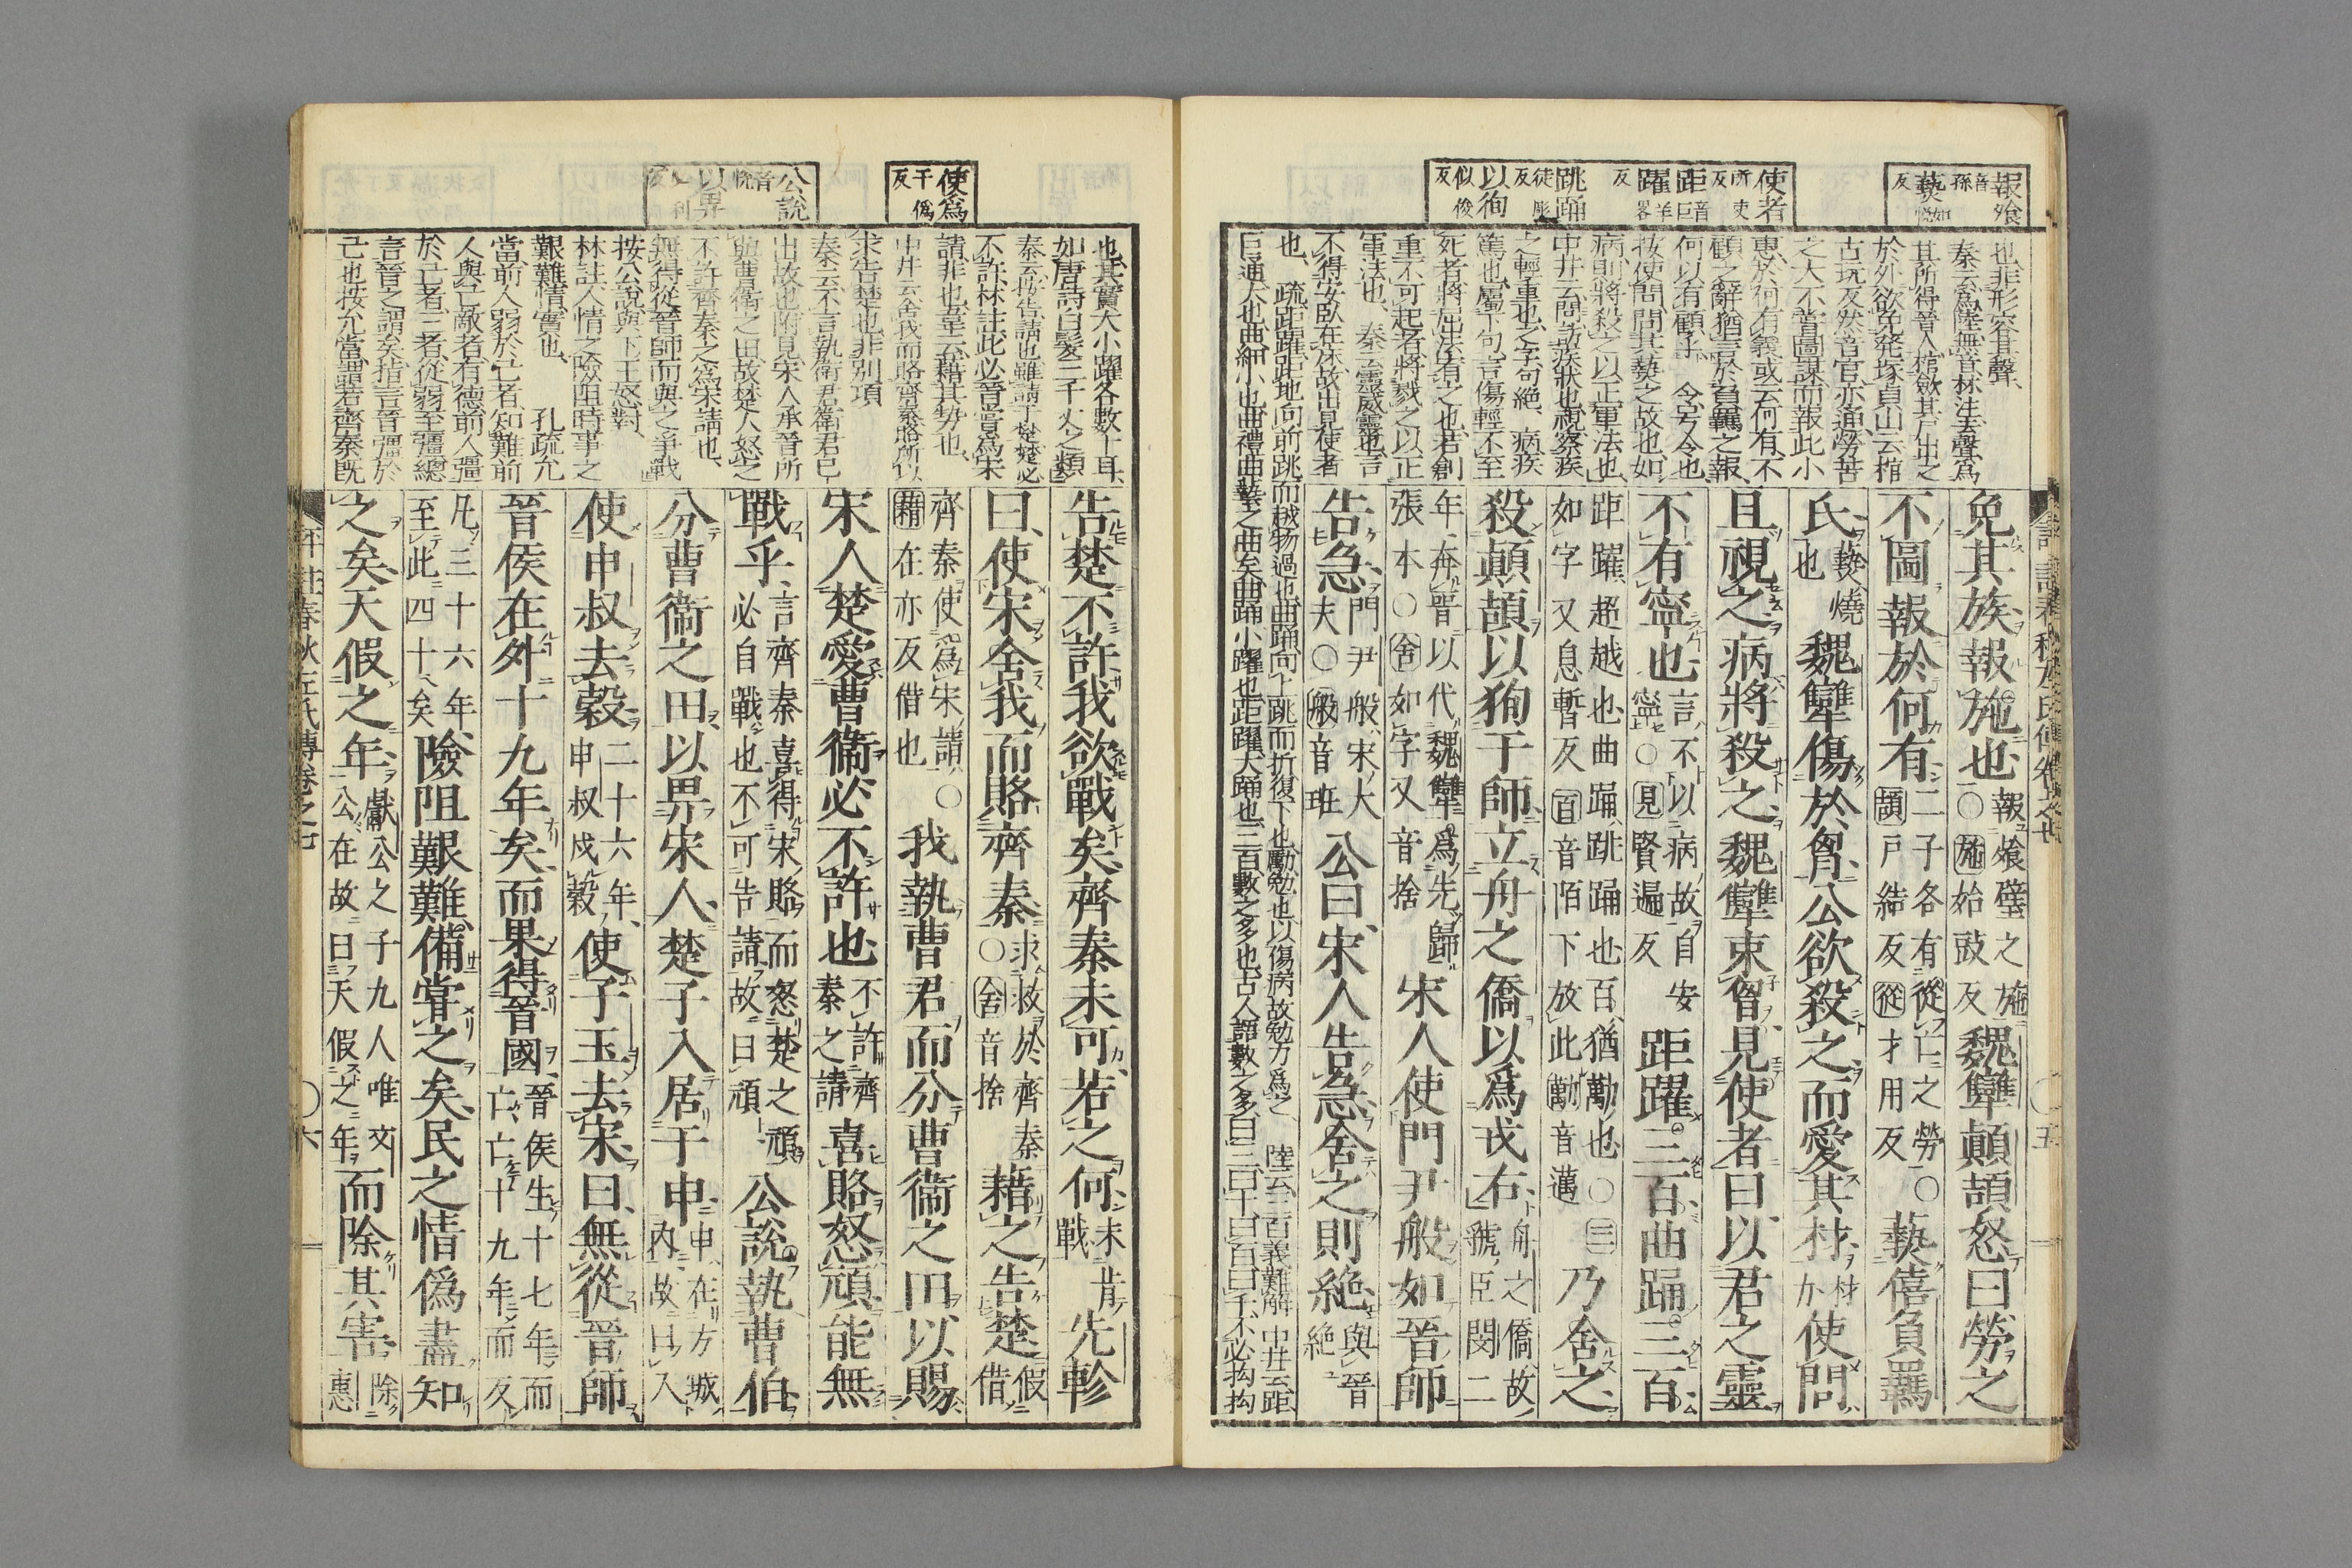 報飧音孫
爇如悅反
使者所吏反
距音巨
躍羊畧反
跳踊徒彫反
以徇似俊反
也非形容其聲、
秦云爲陸無音林注去聲爲
其所得晉人棺斂其尸出之
於外欲免発塚貞山云棺
古玩反然音官亦通勞苦
之大不曾圖謀而報此小
惠於何有義或云何有不
顧之辭猶言於負羈之報
何以有顧乎 今考今也
按使問問其藝之故也如
病則將殺之以正軍法也
中井云問訪疾狀也視察疾
之輕重也之字句絕 病疾
篤也屬下句言傷輕不至
死者將屈法宥之也若創
重不可起者將戮之以正
軍法也 秦云靈威靈也言
不得安臥在床故出見使者
也
疏距躍距地向前跳而越物過也曲踊向上跳而折復下也勵勉也以傷病故勉力爲之 陸云三百義難解 中井云距
巨通大也曲細小也曲禮曲藝之曲矣曲踊小躍也距躍大踊也三百數之多也古人語數之多曰三百曰千曰百曰千不必拘拘
免其族報施也報飧璧之施○施始豉反魏犫顛頡怒曰勞之
不圖報於何有二子各有從亡之勞○頡戶結反從才用反爇僖負羈
氏爇燒也魏犫傷於胷公欲殺之而愛其材材力使問
且視之病將殺之魏犫束胷見使者曰以君之靈
不有寧也言不以病故自安寧○見賢遍反距躍三百曲踊三百
距躍超越也曲踊跳踊也百猶勵也○三如字又息暫反百音陌下放此勵音邁乃舍之
殺顛頡以狥于師立舟之僑以爲戎右舟之僑故虢臣閔二
年奔晉以代魏犫爲先歸張本○舍如字又音捨宋人使門尹般如晉師
告急門尹般宋大夫○般音班公曰宋人告急舍之則絕與晉絕
告楚不許我欲戰矣齊秦未可若之何未肯戰先軫
曰使宋舍我而賂齊秦求救於齊秦○舍音捨藉之告楚假借
齊秦使爲宋請○藉在亦反借也我執曹君而分曹衞之田以賜
宋人楚愛曹衞必不許也不許齊秦之請喜賂怒頑能無
戰乎言齊秦喜得宋賂而怒楚之頑必自戰也不可告請故曰頑公說執曹伯
分曹衞之田以畀宋人楚子入居于申申在方城內故曰入
使申叔去穀二十六年申叔戍穀使子玉去宋曰無從晉師
晉侯在外十九年矣而果得晉國晉侯生十七年而亡亡十九年而反
凡三十六年至此四十矣險阻艱難備嘗之矣民之情僞盡知
之矣天假之年獻公之子九人唯文公在故曰天假之年而除其害除惠
使爲干僞反
公說音悅
以畀必利反
也其實大小躍各數十耳
如唐詩白髮三千丈之類
秦云按告請也雖請于楚楚必
不許林註此必晉嘗爲宋
請非也葦云藉其勢也
中井云舍我而賂齊秦賂所以
求告楚也非別項
秦云不言執衞君衞君已
出故也附見宋人承晉所
與曹衞之田故楚人怒之
不許齊秦之爲宋請也
無得從晉師而與之爭戰
按公說與下王怒對
林註人情之險阻時事之
艱難情實也 孔疏允
當前人弱於亡者知難前
人與亡敵者有德前人彊
於亡者三者從弱至彊總
言晉之謂矣指言晉彊於
己也按允當謂若齊秦既
評註春秋左氏傳卷之七 ○五
評註春秋左氏傳卷之七 ○六